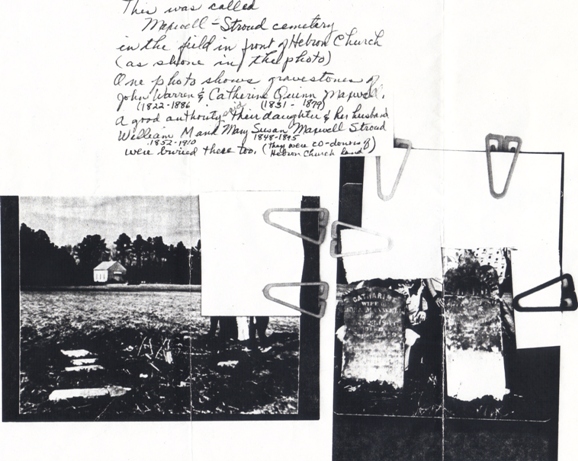 This was called
Maxwell-Stroud cemetery
in the field in front of Hebron Church
(as shone in the photo)
One photo shows gravestones of
John Warren & Catherine Quinn Maxwell.
(1822-1886 (1831-1899)
A good authority their daughter & her husband
William M and Mary Susan Maxwell Stroud
1852-1910 1848-1895
were buried there too. (They were co-donors of)
Hebron Church land
CATHARINE
WIFE